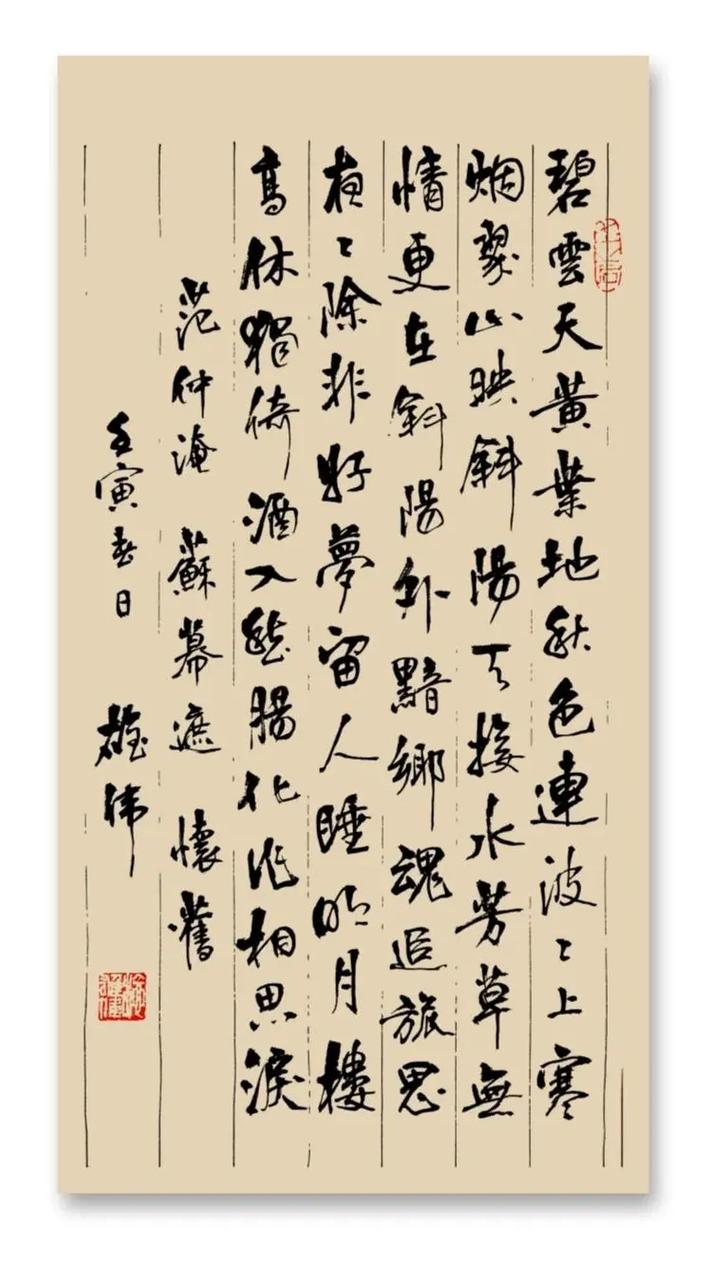 碧雲天黃葉地秋色連波〻上寒
烟翠山映斜陽天接水芳草無
情更在斜陽外黯鄉魂追旅思
夜〻除非好夢留人睡明月樓
高休獨倚酒入愁腸化作相思淚
范仲淹 蘇幕遮 懷舊
壬寅春日 雄偉